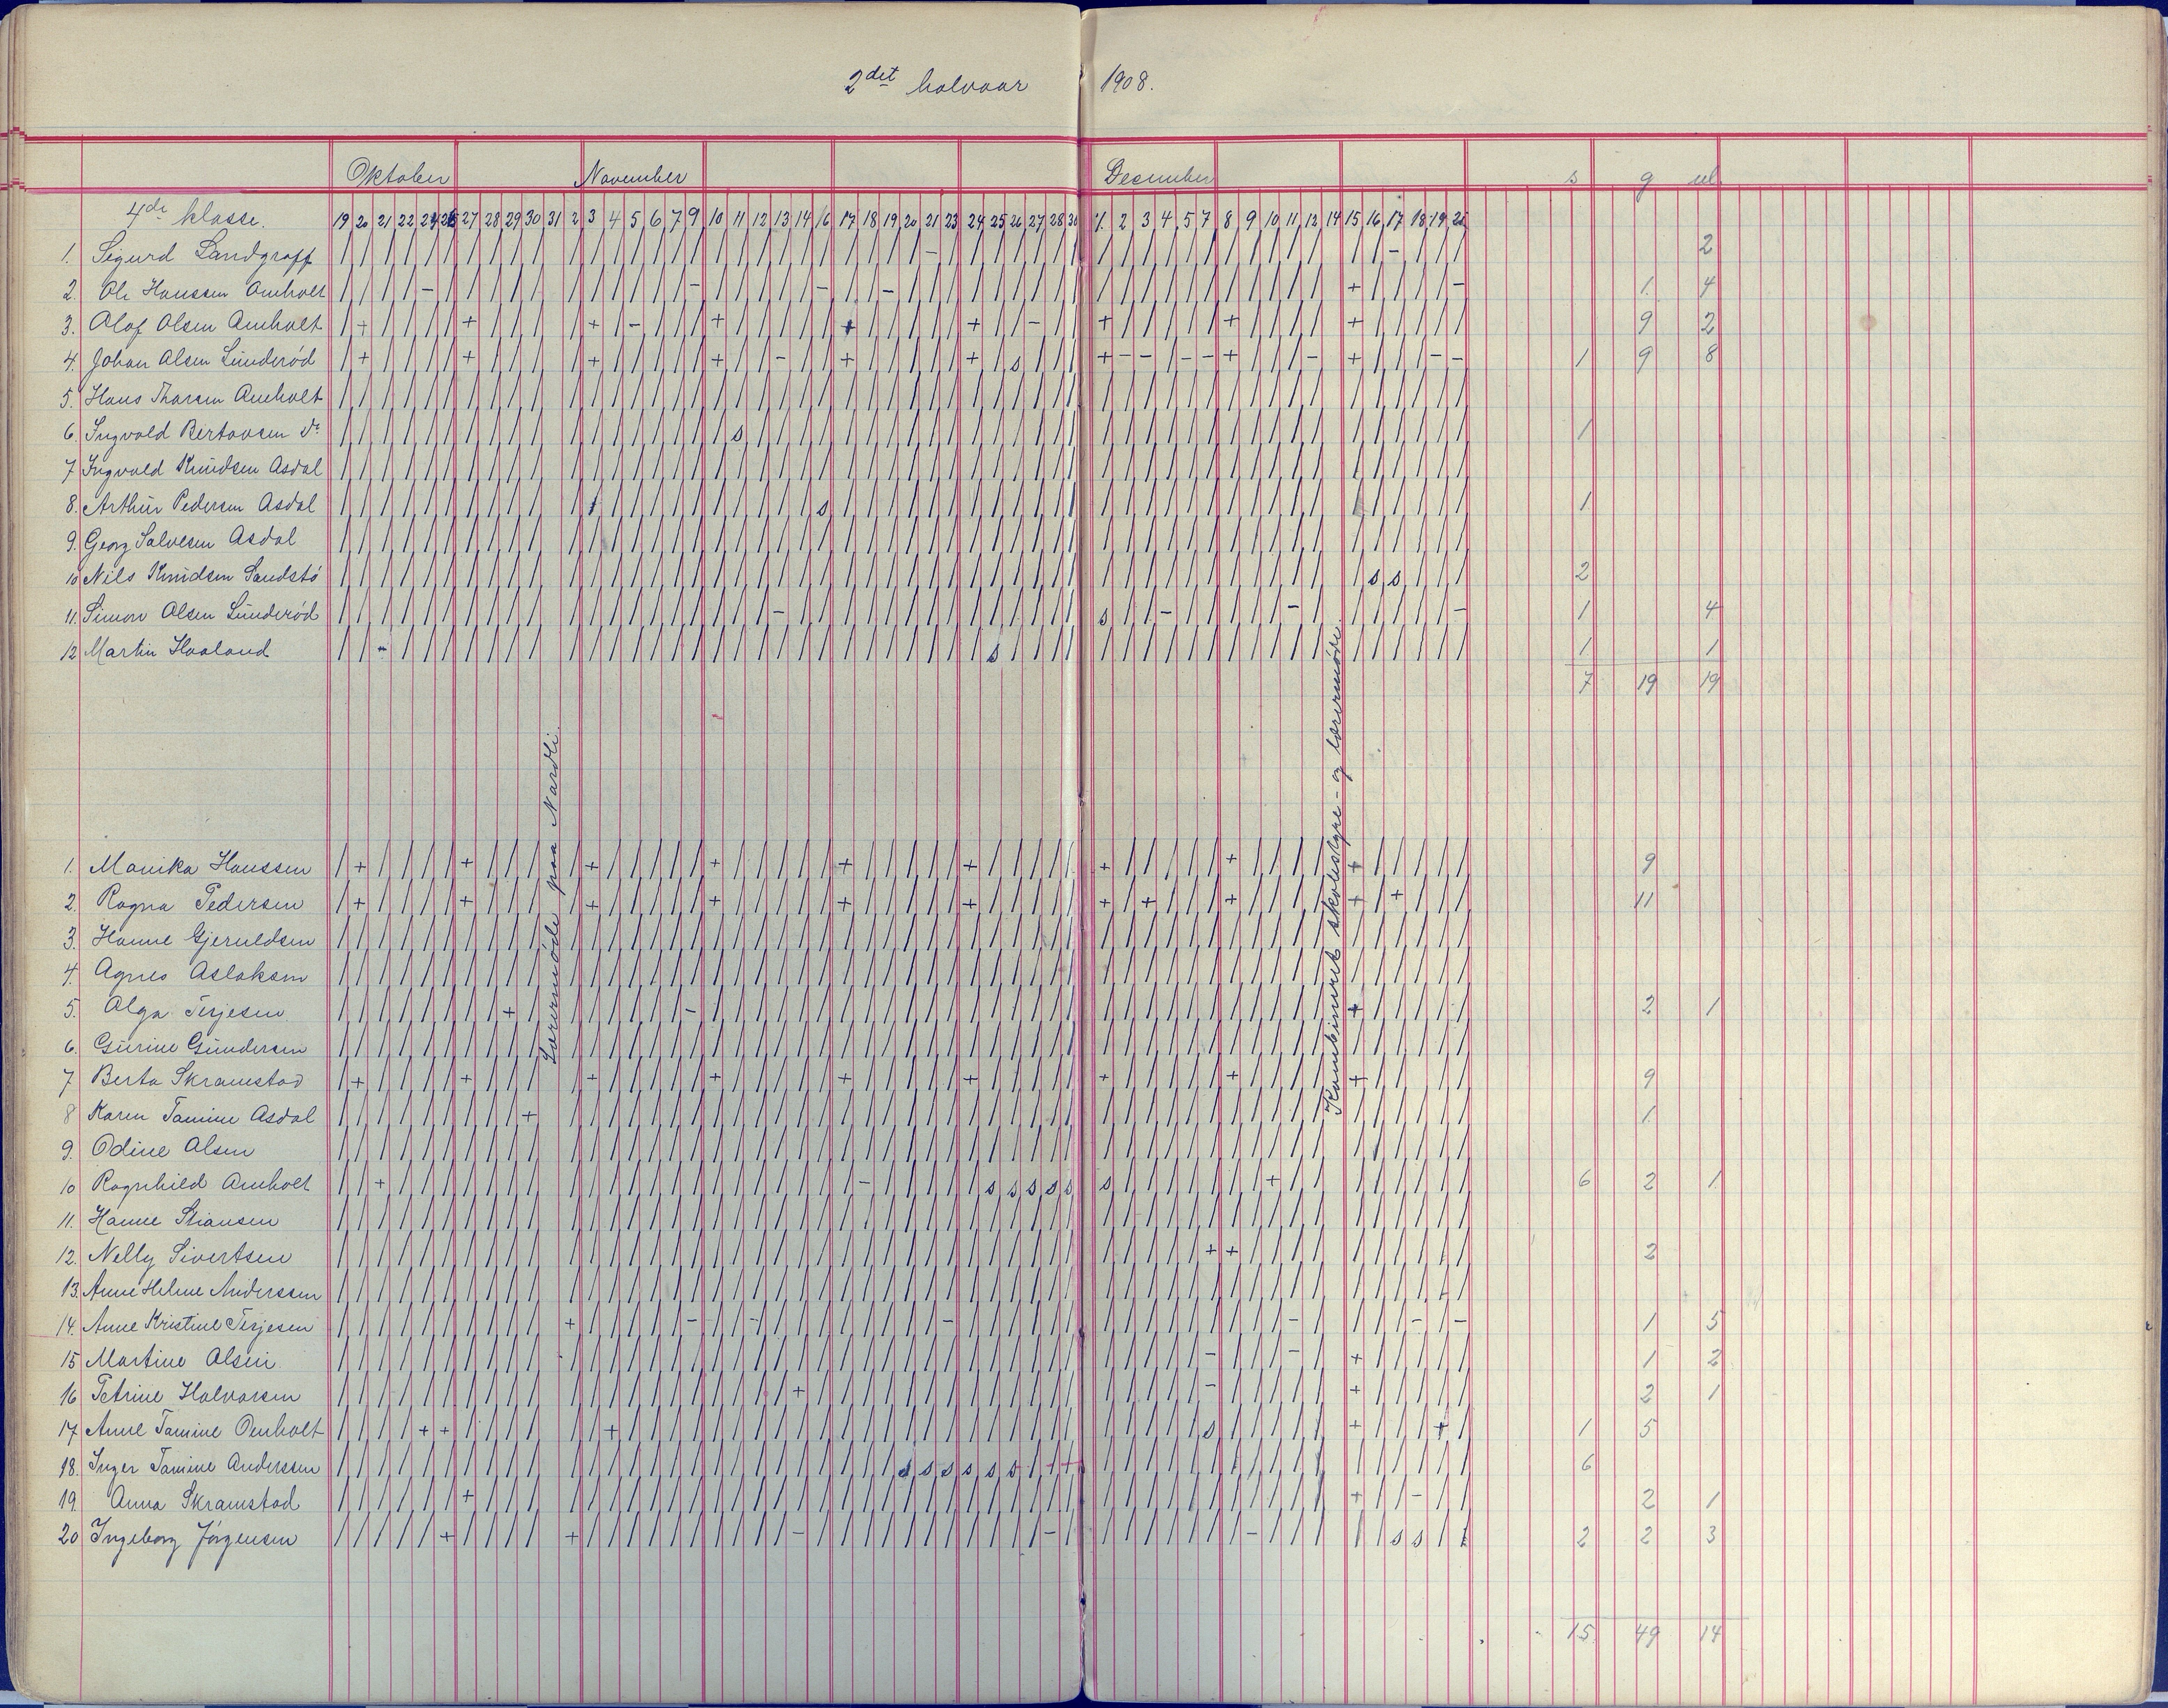 2det halvaar 1908.
Oktober November December s g ul
4de klasse. 19 20 21 22 24 26 27 28 29 30 31 2 3 4 5 6 7 9 10 11 12 13 14 16 17 18 19 20 21 23 24 25 26 27 28 30 1. 2 3 4 5 7 8 9 10 11 12 14 15 16 17 18 19 21
1. Sigurd Landgraff 2
2. Ole Hanssen Omholt 1 4
3. Olaf Olsen Omholt 9 2
4. Johan Olsen Lunderød 1 9 8
5. Hans Thorsen Omholt
6. Ingvald Bertansen do 1
7 Ingvald Knudsen Asdal
8. Arthur Pedersen Asdal 1
9. Georg Salvesen Asdal
10 Nils Knudsen Sandstø 2
11. Simon Olsen Lunderød 1 4
12 Martin Haaland 1 1
7 19 19
Lærermøde paa Nardli.
Kombineret skolestyre- og lærermøde.
1. Monika Hanssen 9
2. Ragna Pedersen 11
3. Hanne Gjeruldsen
4. Agnes Aslaksen
5. Olga Terjesen 2 1
6. Gurine Gundersen
7 Berta Skramstad 9
8 Karen Tomine Asdal 1
9. Odine Olsen
10 Ragnhild Omholt 6 2 1
11. Hanne Stiansen
12. Nelly Sivertsen 2
13. Anne Helene Anderssen
14. Anne Kristine Terjesen 1 5
15 Martine Olsen 1 2
16 Petrine Halvorsen 2 1
17 Anne Tomine Omholt 1 5
18. Inger Tomine Anderssen 6
19. Anna Skramstad 2 1
20 Ingeborg Jørgensen 2 2 3
15 49 14